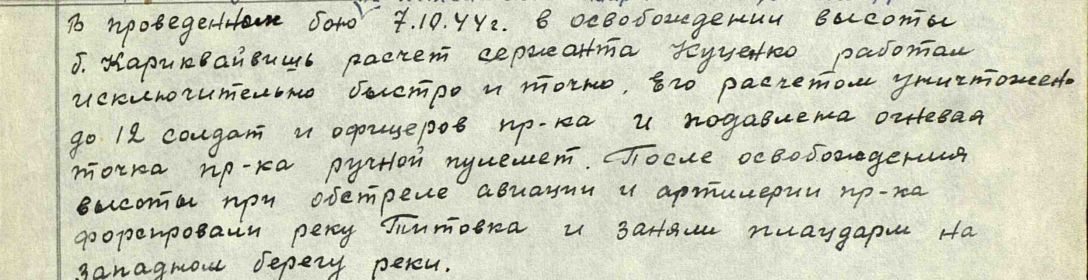 В проведенном бою 7.10.44г. в освобождении высоты
б. Кариквайвишь расчет сержанта Куценко работал
исключительно быстро и точно. Его расчетом уничтожено
до 12 солдат и офицеров пр-ка и подавлена огневая
точка пр-ка ручной пулемет. После освобождения
высоты при обстреле авиации и артилерии пр-ка
форсировали реку Титовка и заняли плаударм на
западном берегу реки.